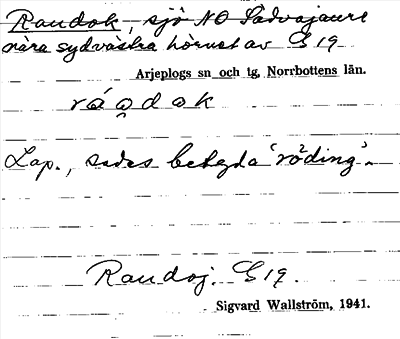 Raudok, sjö NO Sadvajaure
nära sydvästra hörnet av G 19
Arjeplogs sn och tg. Norrbottens län.
ráo̭dok
Lap., sades betyda 'rö²ding'.
Raudoj. G 19.
Sigvard Wallström, 1941.